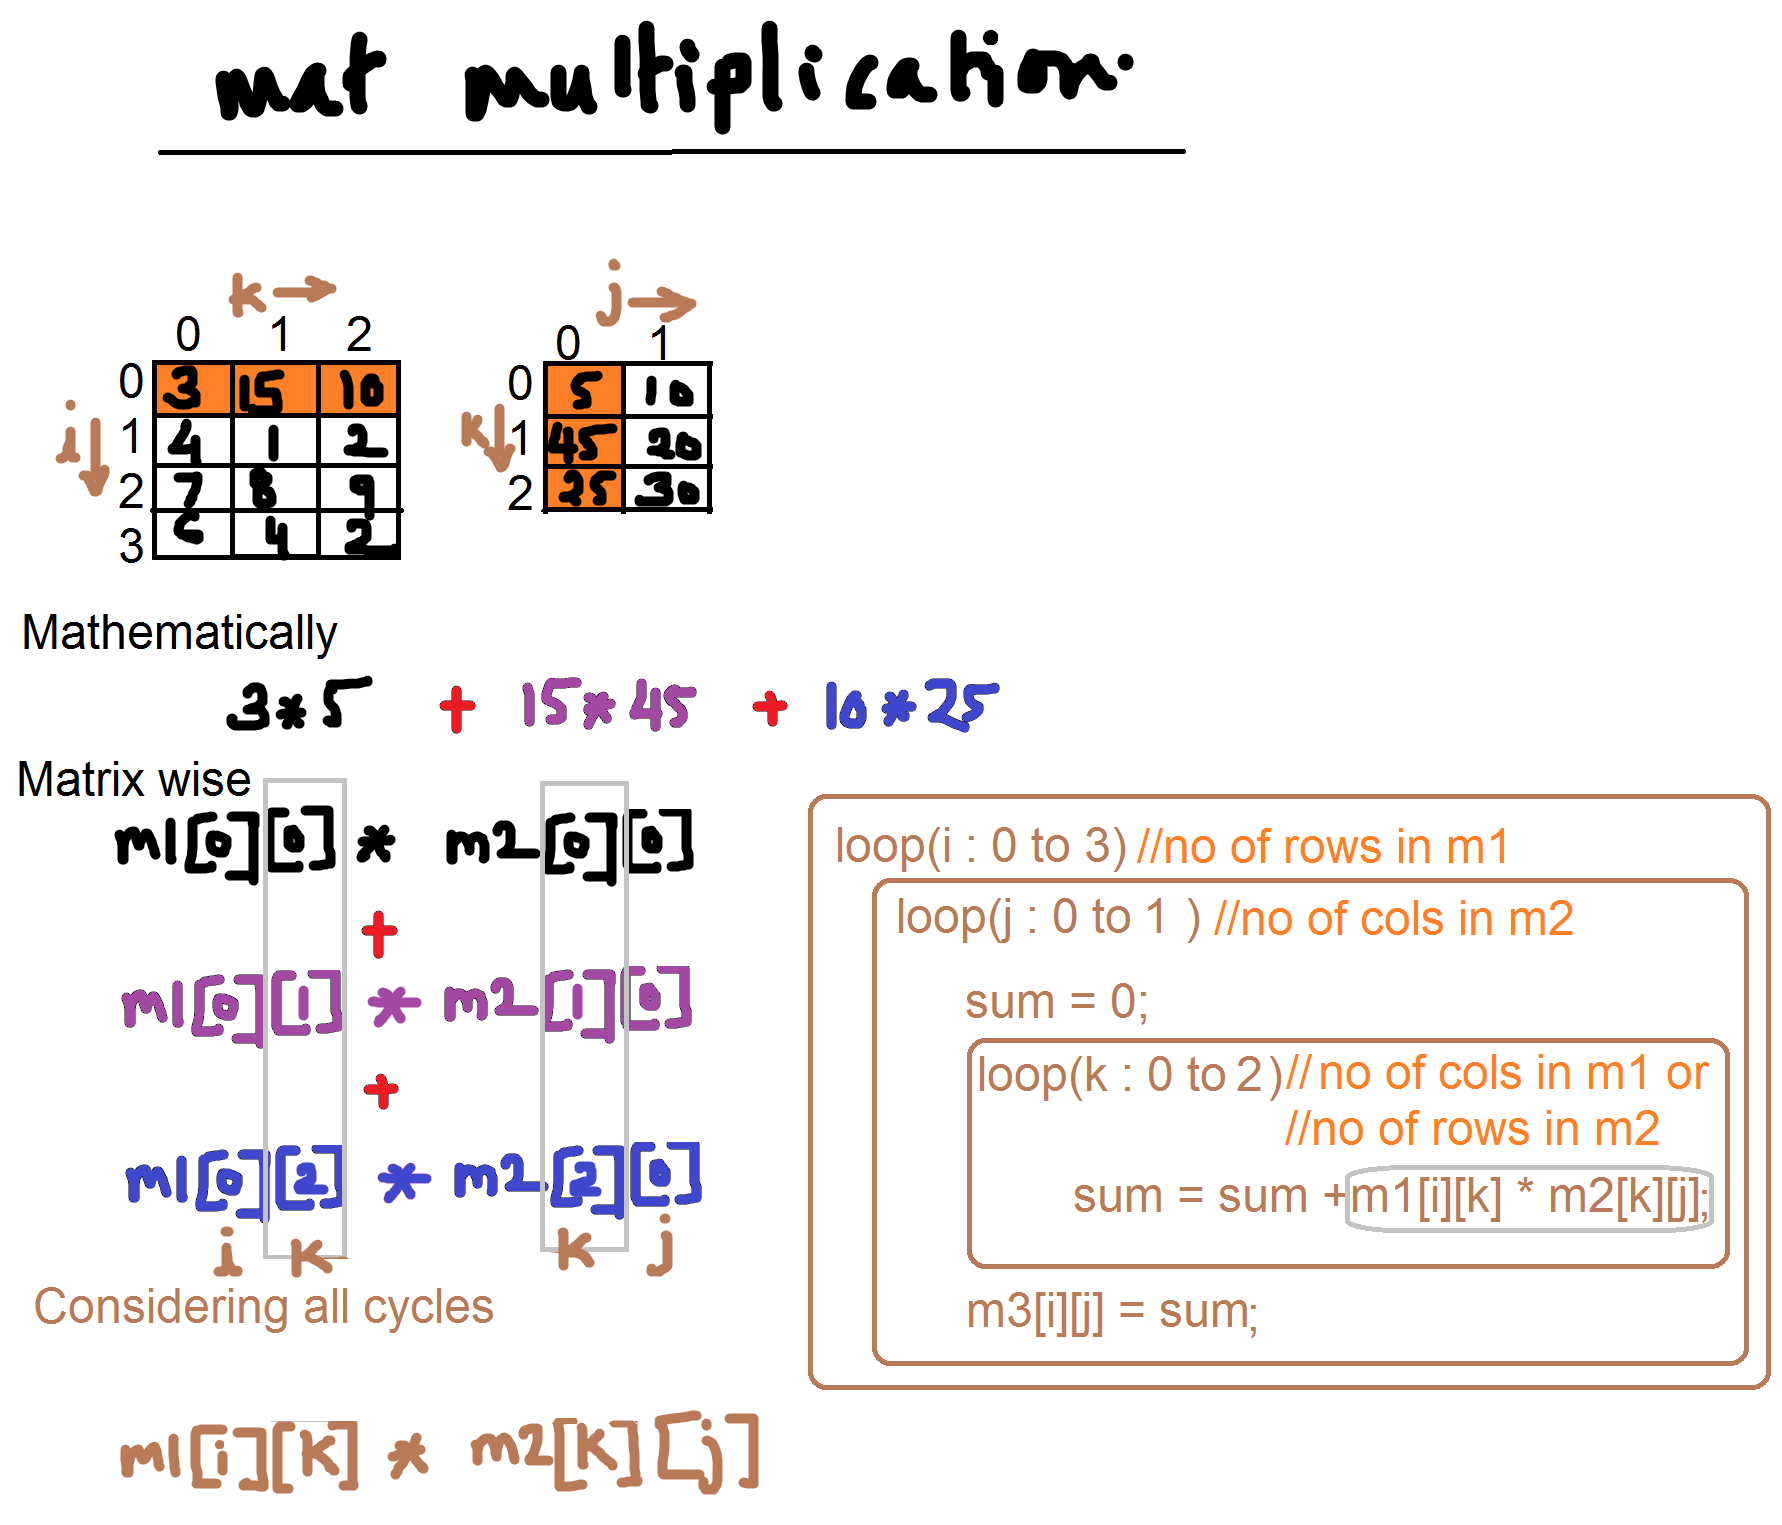 mat multiplication.
k → j →
0 1 2 0 1
0 3 15 10 0 5 10
i ↓ 1 4 1 2 k ↓ 1 45 20
2 7 8 9 2 25 30
3 6 4 2
Mathematically
3*5 + 15*45 + 10*25
Matrix wise
m1[0][0] * m2[0][0]
+
m1[0][1] * m2[1][0]
+
m1[0][2] * m2[2][0]
i k k j
Considering all cycles
m1[i][k] * m2[k][j]
loop(i : 0 to 3) //no of rows in m1
loop(j : 0 to 1 ) //no of cols in m2
sum = 0;
loop(k : 0 to 2)// no of cols in m1 or
//no of rows in m2
sum = sum +m1[i][k] * m2[k][j];
m3[i][j] = sum;